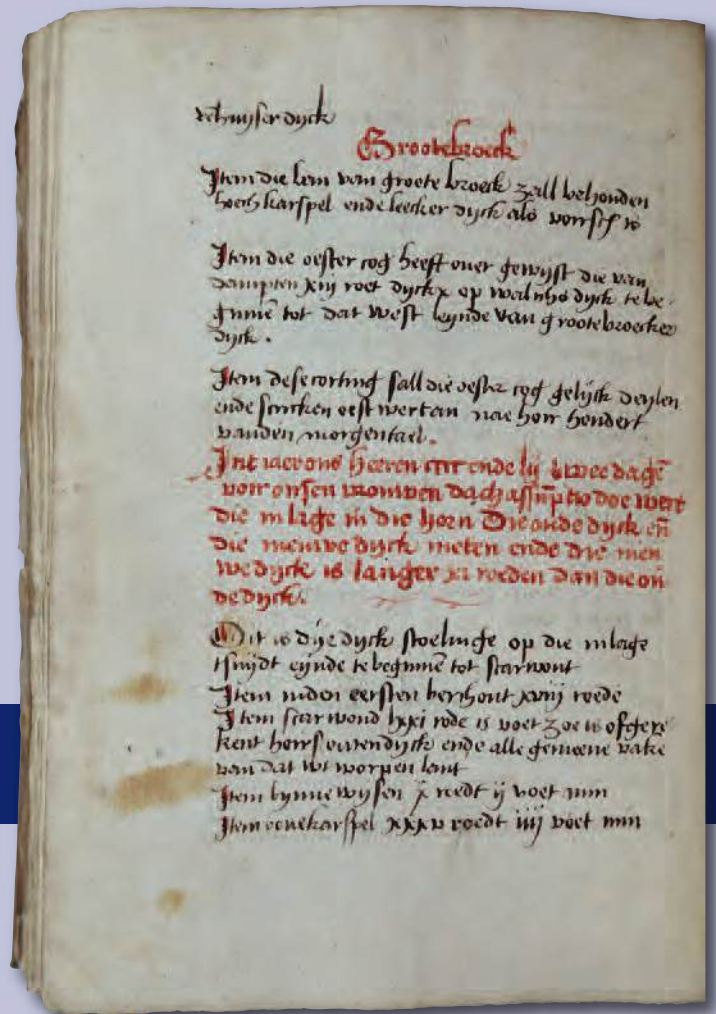 Grootebroeck
Item die ban van groote broeck zall behouden
hoech karspel ende leecker dyck als vorrsch is
Item die oester cog heeft over gewyst die van
dampten xiij roet dyckx op te be
ginnē tot dat west eynde van grootebroecker
dyck .
Item dese corting sall die oester cog gelyck deylen
ende oest wert an nae horr hondert
vanden morgentael .
Int iaer ons heeren ende lij twee dagē
voir onsen vrouwen dach assūptio doe wert
die inlage in die horn Die oude dyck eñ
die nieuwe dyck meten ende die nieu
we dyck is langer xi roeden dan die ou
de dyck .
Dit is dye dyck stoelinge op die inlage
tsuydt eynde te beginnē tot scarwout
Item inden eersten berchout xviij roede
Item scar woud lxxi rode is voet zoe is ofgere
kent ende alle gemeene vake
van dat wt worpen lant
Item bynne wysen x roedt ij voet min
Item karspel xxxv roedt iiij voet min